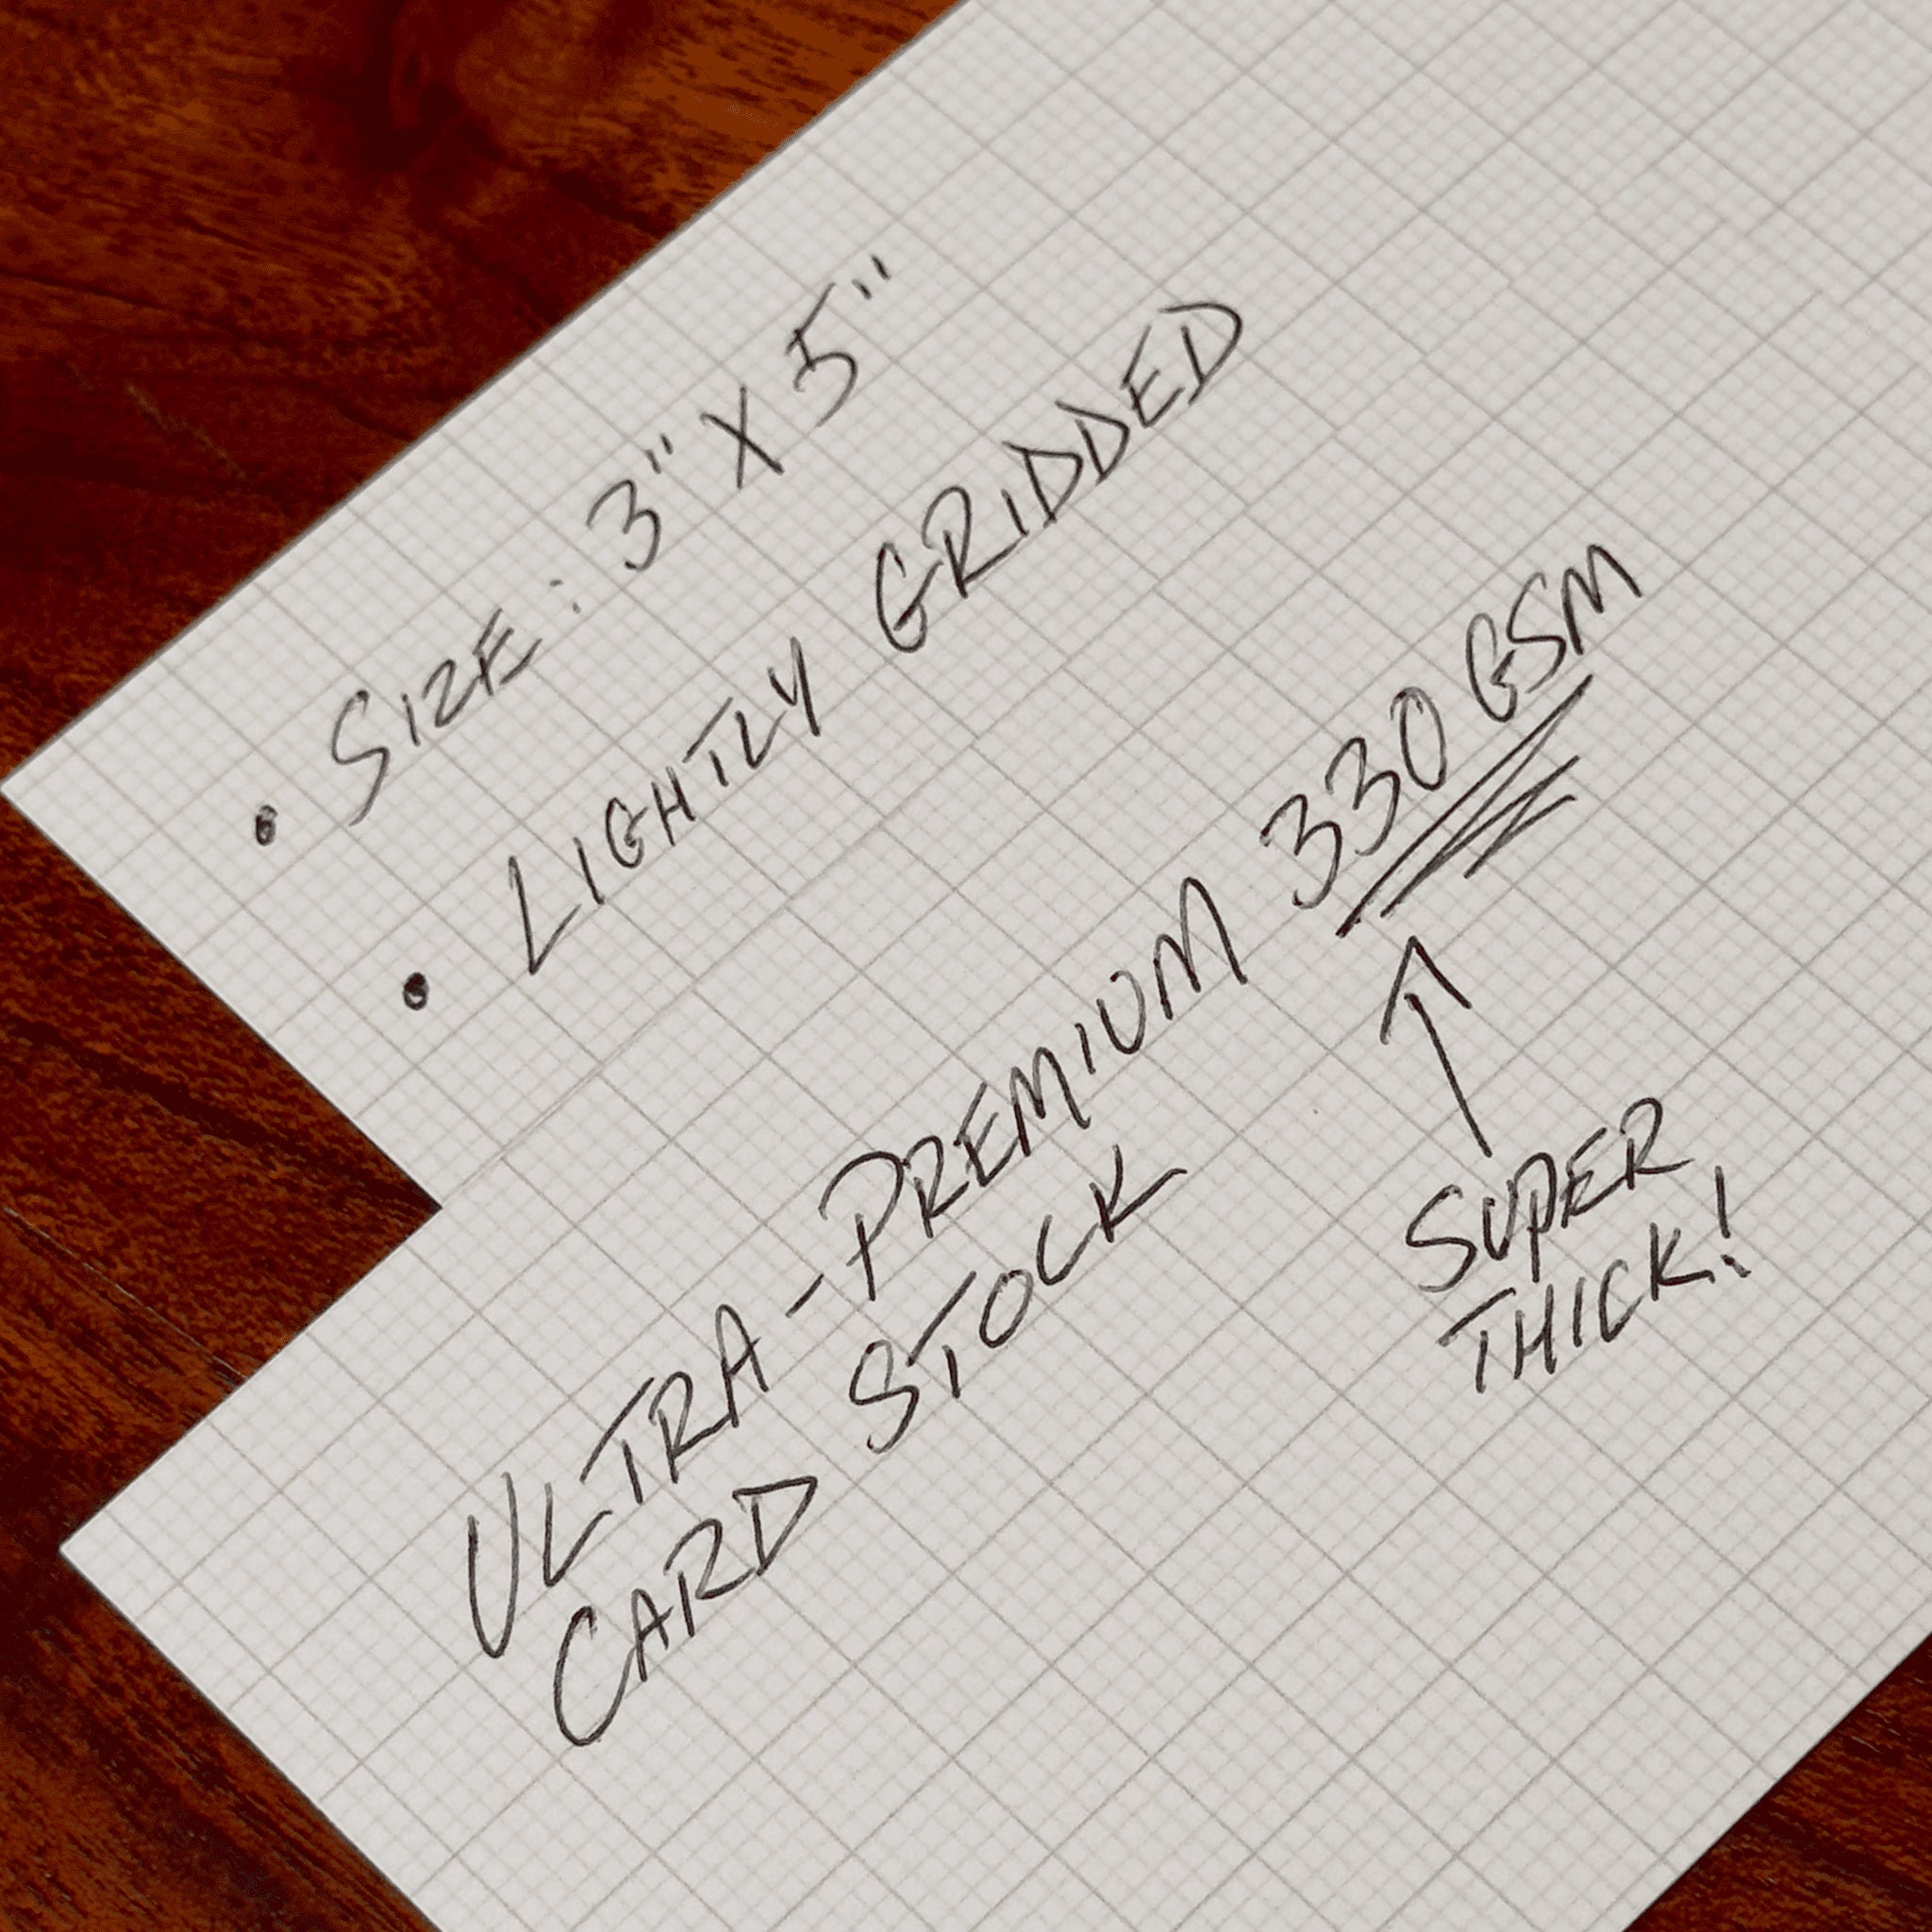 • SIZE: 3" X 5"
• LIGHTLY GRIDDED
ULTRA-PREMIUM 330 GSM
CARD STOCK
SUPER
THICK!